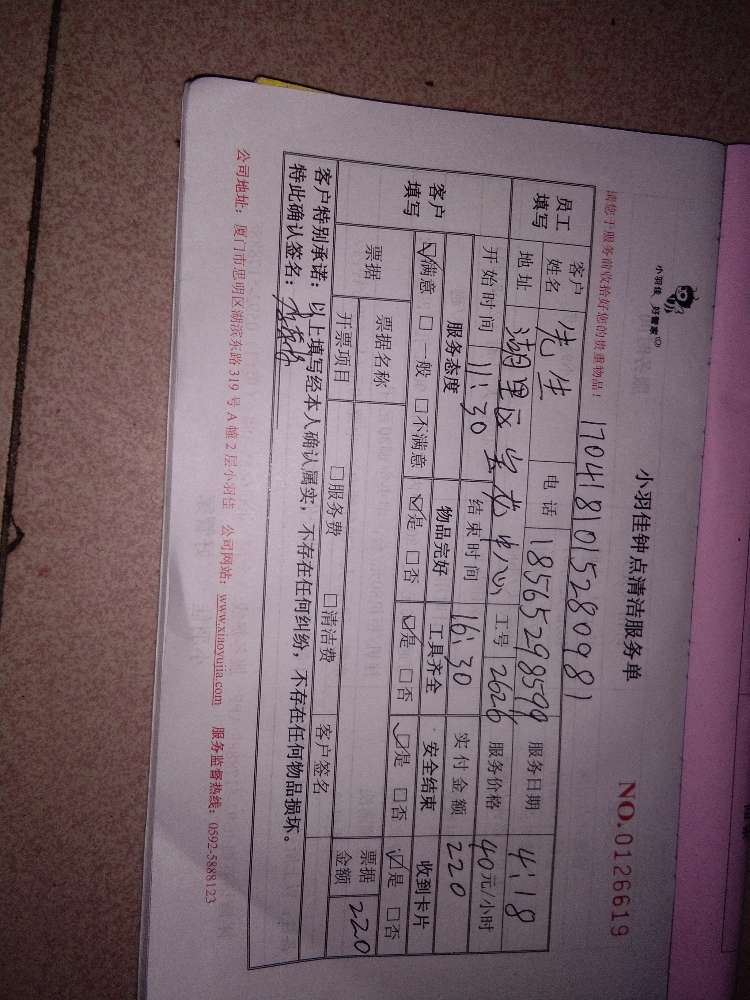 小羽佳 好管家
小羽佳钟点清洁服务单
NO.0126619
请您于服务前收拾好您的贵重物品！
170418101528098１
员工填写 客户姓名 先生 电话 18565298599 服务日期 4.18
地址 湖里区 中心 工号 2626 服务价格 40元/小时
开始时间 11:30 结束时间 16:30 实付金额 220
客户填写 服务态度 物品完好 工具齐全 安全结束 收到卡片
☑满意 □一般 □不满意 ☑是 □否 ☑是 □否 ☑是 □否 ☑是 □否
票据 票据名称 票据金额 220
开票项目 □服务费 □清洁费 客户签名
客户特别承诺：以上填写经本人确认属实，不存在任何纠纷，不存在任何物品损坏。
特此确认签名：
公司地址：厦门市思明区湖滨东路319号A幢2层小羽佳 公司网站：www.xiaoyujia.com 服务监督热线：0592-5888123